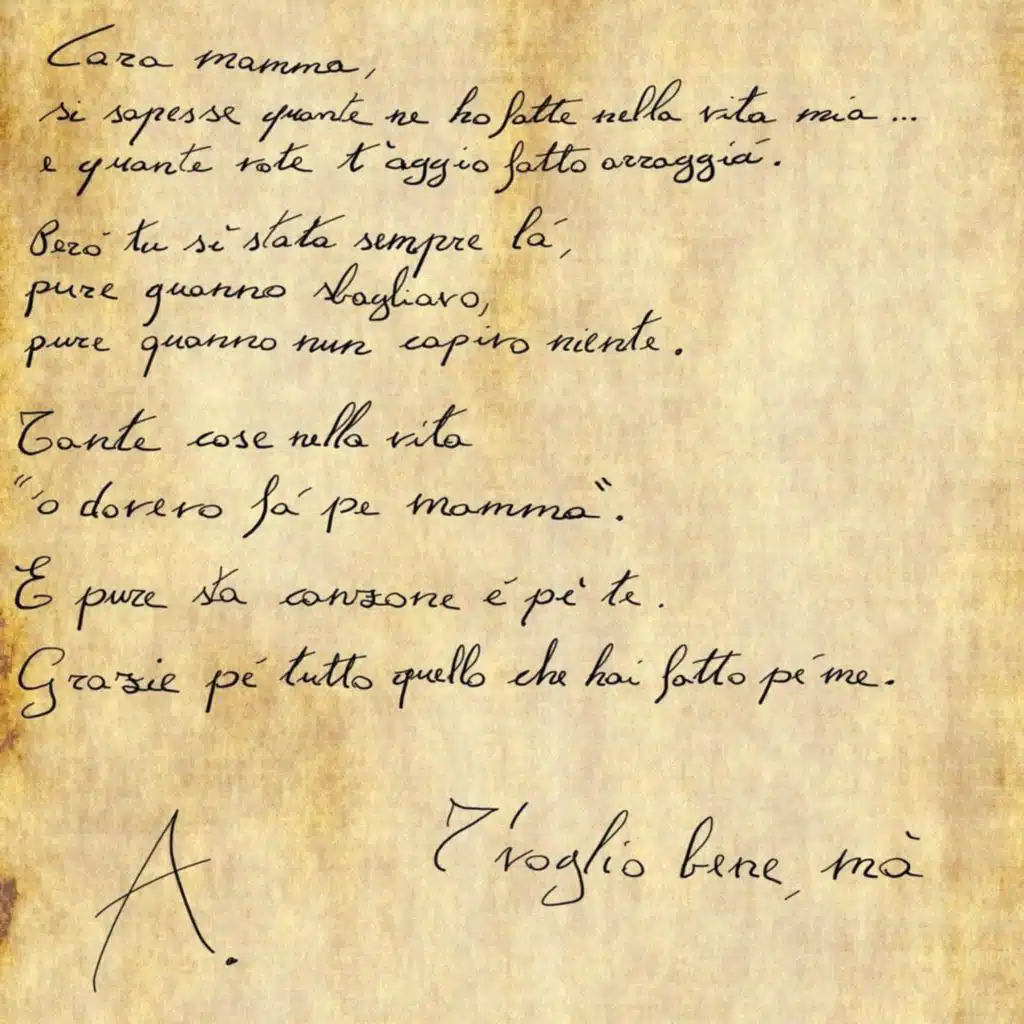 Cara mamma,
si sapesse quante ne ho fatte nella vita mia ...
e quante vote t'aggio fatto arraggiá.
Peró tu si stata sempre lá,
pure quanno sbagliavo,
pure quanno nun capivo niente.
Tante cose nella vita
"'o dovevo fá pe mamma".
E pure sta canzone é pe' te.
Grazie pé tutto quello che hai fatto pé me.
T'voglio bene, mà
A.